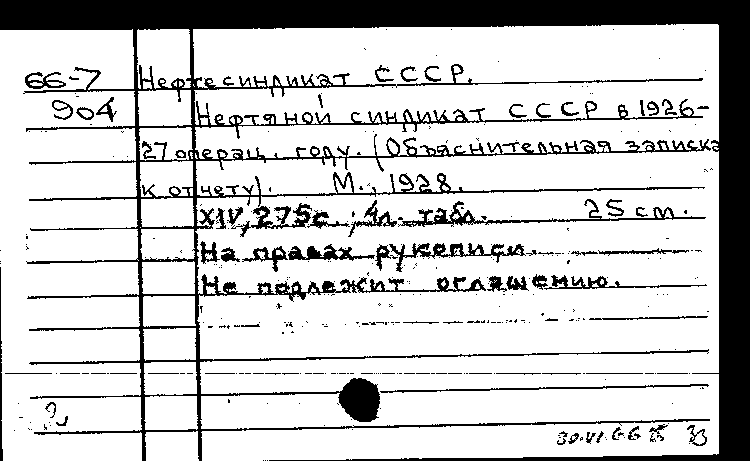 66-7 Нефтесиндикат СССР.
904 Нефтяной синдикат СССР в 1926-
27 операц. году. (Объяснительная записка
к отчету). М., 1928.
XIV, 275с.; 4л. табл. 25 см.
На правах рукописи.
Не подлежит оглашению.
30.VI.66